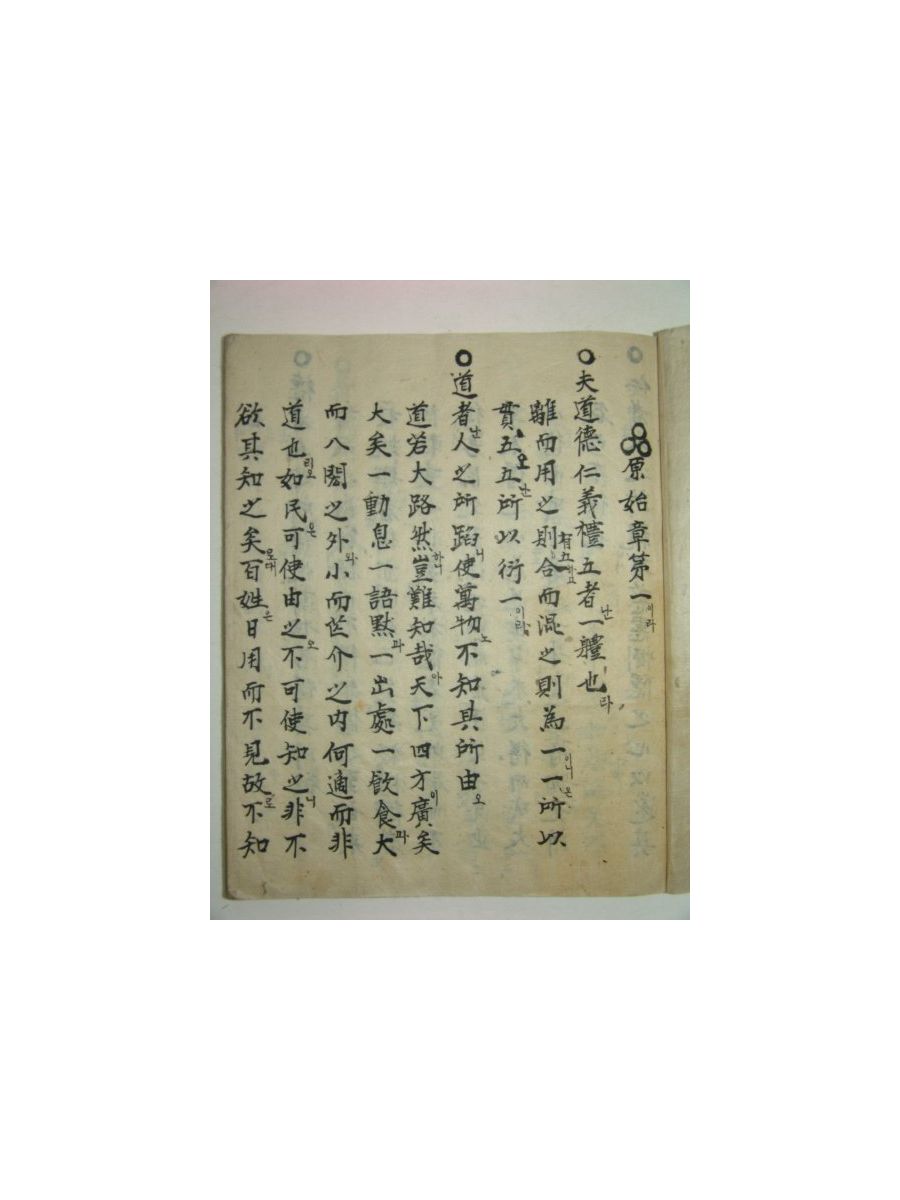 原始章第一이라
夫道德仁義禮五者난一體也라
離而用之則有五하고合而混之則為一이니一은所以
貫五오五난所以衍一이라
道者난人之所蹈니使萬物노不知其所由오
道若大路然하니豈難知哉아天下四方이廣矣
大矣一動息一語黙과一出處一飮食과大
而八閎之外와小而芒介之内何適而非
道也리오如民은可使由之오不可使知之니非不
欲其知之矣로대百姓은日用而不見故로不知